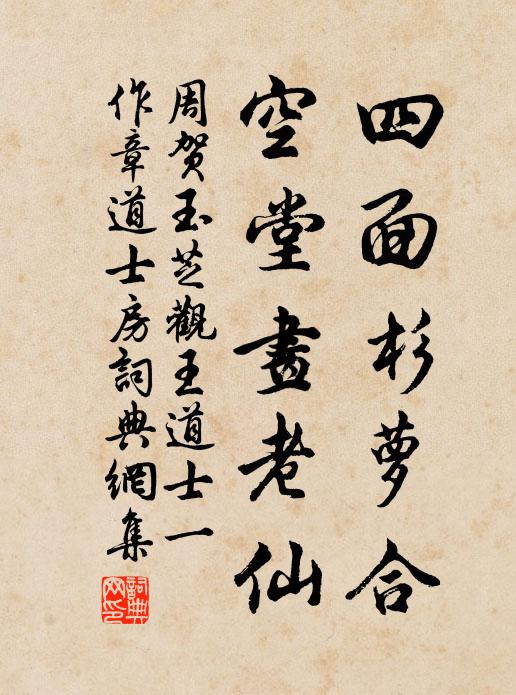 四面杉萝合
空堂畫老仙
周賀玉芝觀王道士一
作章道士房詞典網集
詞典
网印